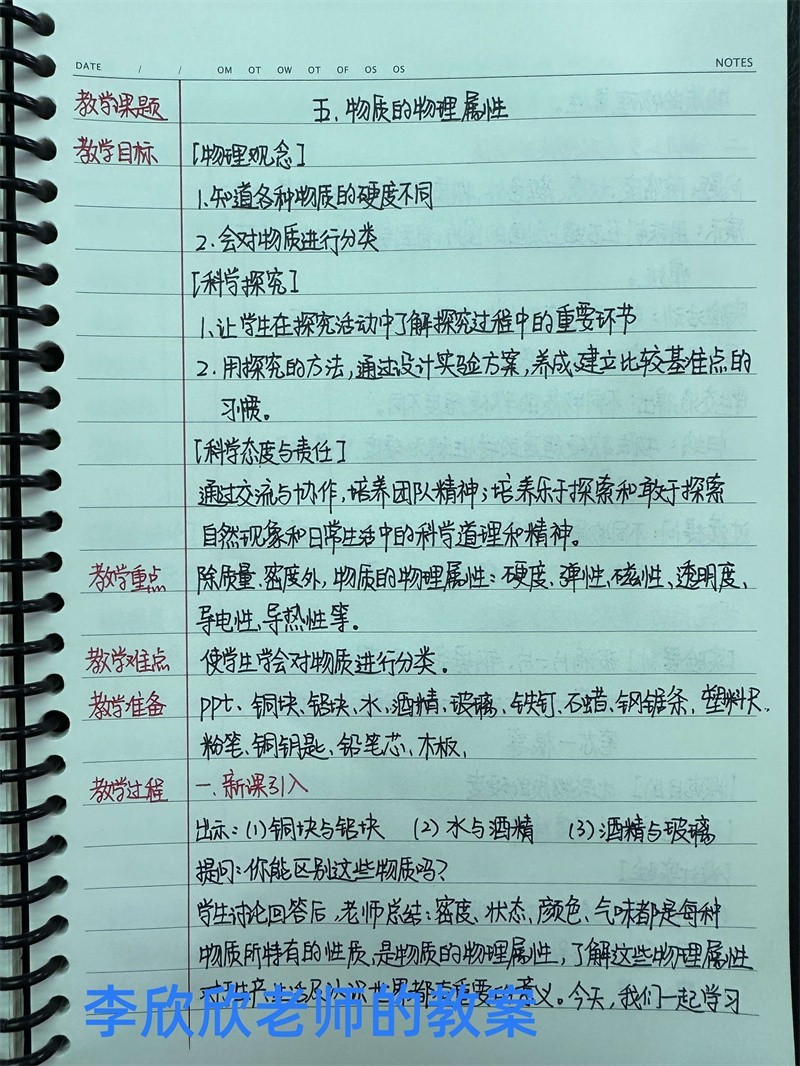 DATE / / OM OT OW OT OF OS OS NOTES
教学课题 五、物质的物理属性
教学目标 [物理观念]
1.知道各种物质的硬度不同
2.会对物质进行分类
[科学探究]
1.让学生在探究活动中了解探究过程中的重要环节
2.用探究的方法,通过设计实验方案,养成建立比较基准点的
习惯。
[科学态度与责任]
通过交流与协作,培养团队精神;培养乐于探索和敢于探索
自然现象和日常生活中的科学道理和精神。
教学重点 除质量、密度外,物质的物理属性:硬度、弹性、磁性、透明度、
导电性、导热性等。
教学难点 使学生学会对物质进行分类。
教学准备 ppt、铜块、铝块、水、酒精、玻璃、铁钉、石蜡、钢锯条、塑料尺、
粉笔、铜钥匙、铅笔芯、木板,
教学过程 一、新课引入
出示:(1)铜块与铝块 (2)水与酒精 (3)酒精与玻璃
提问:你能区别这些物质吗?
学生讨论回答后,老师总结:密度、状态、颜色、气味都是每种
物质所特有的性质,是物质的物理属性,了解这些物理属性
对 世界都 重要的意义。今天,我们一起学习
李欣欣老师的教案